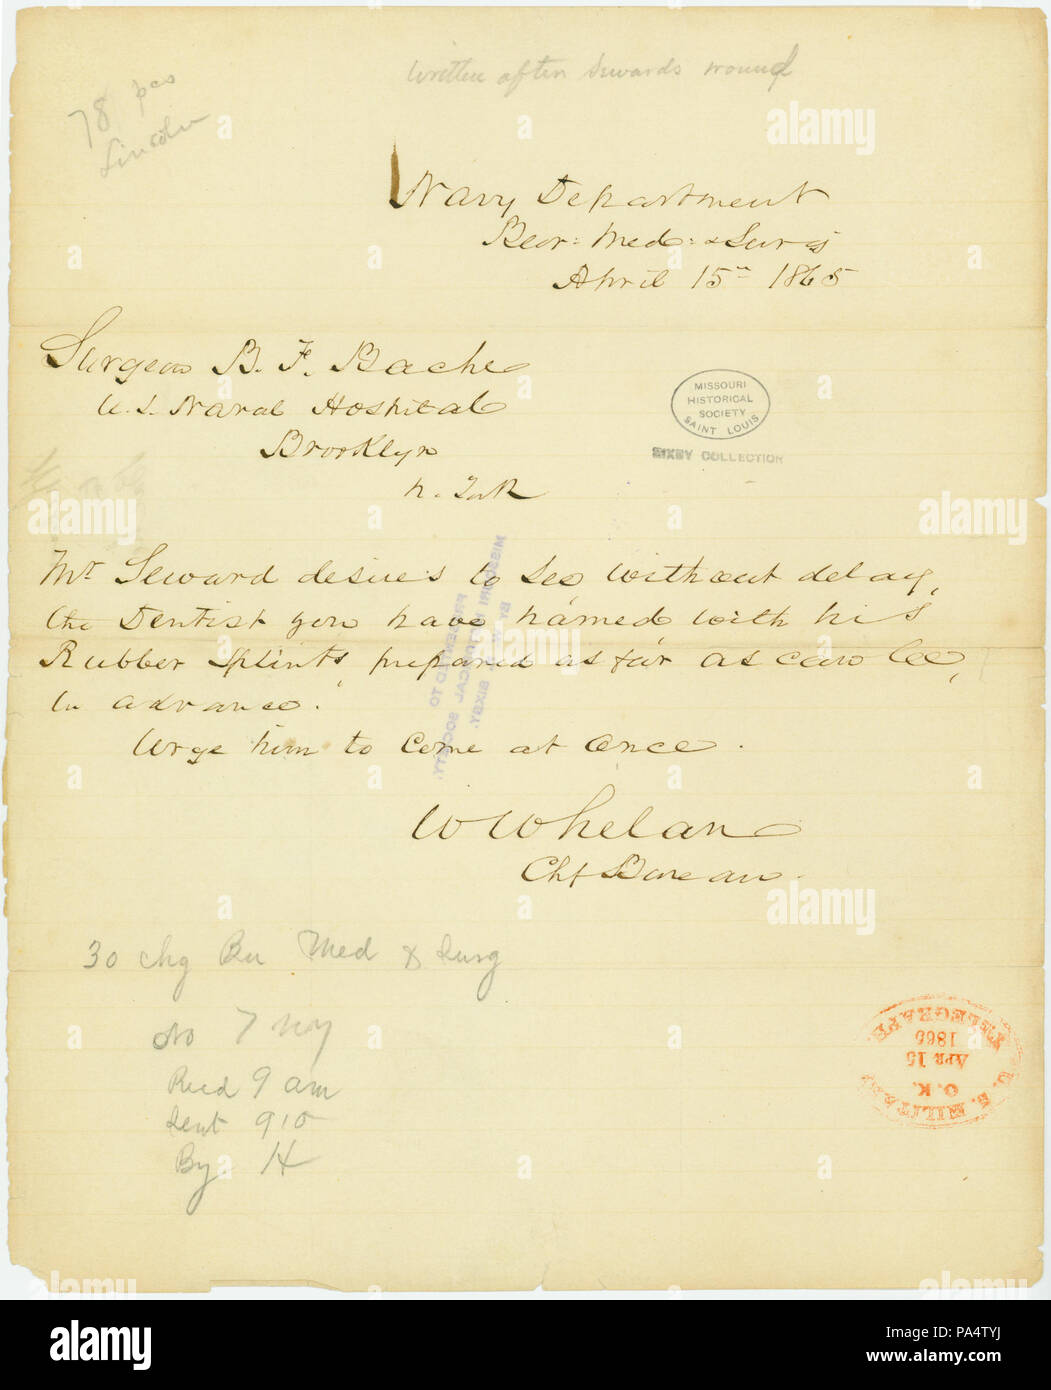 written after Sewards wound
78 pcs
Lincoln
Navy Department
Beor: Med: & Surg
April 15th 1865
Surgeon B. F. Bache
U. S. Naval Hospital
Brooklyn
N. York
MISSOURI
HISTORICAL
SOCIETY
SAINT LOUIS
BIXBY COLLECTION
Mr Seward desires to see, without delay,
the Dentist you have named with his
Rubber Splints, prepared as far as can be,
in advance.
Urge him to come at once.
PRESENTED TO
MISSOURI HISTORICAL SOCIETY,
BY W. K. BIXBY.
W Whelan
Chf Bureau.
30 chg Bu Med & Surg
No 7 NY
Recd 9 am
Sent 910
By H
U. S. MILITARY
O. K.
APR 15
1865
TELEGRAPH
alamy
a
alamy
Image ID: PA4TYJ
www.alamy.com